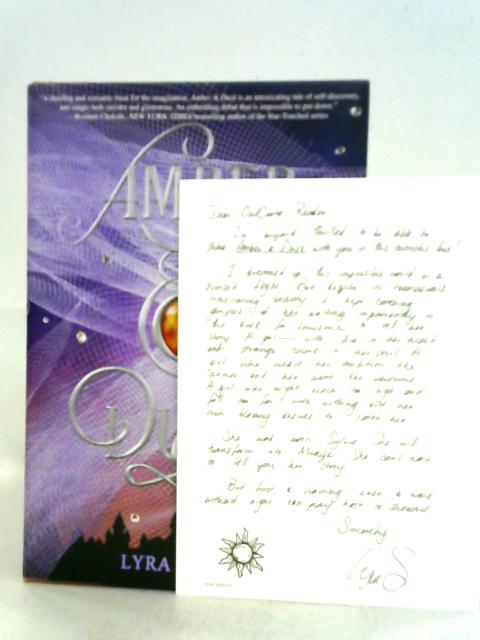 "A dazzling and romantic feast for the imagination, Amber & Dusk is an intoxicating tale of self-discovery,
and magic both sinister and glamorous. An enthralling debut that is impossible to put down."
Roshani Chokshi, NEW YORK TIMES bestselling author of the Star-Touched series
AMBER
&
DUSK
LYRA
Dear OwlCrate Reader
I'm beyond thrilled to be able to
share Amber & Dusk with you in this month's box!
I dreamed up this impossible world on a
sunset flight. But despite its
beauty I kept catching
glimpses of her waiting impatiently in
the for someone to tell her
story. A girl — with fire in her heart
and strange colors in her soul. A
girl who wears her ambition like
armor and her want like
A girl who might reach too high and
fall too far with nothing but her
own blazing desires to catch her.
She was born Sylvie. She will
transform into Mirage. She can't wait
to tell you her story.
But first, a warning: even a world
without night can play host to shadows.
Sincerely,
Lyra S